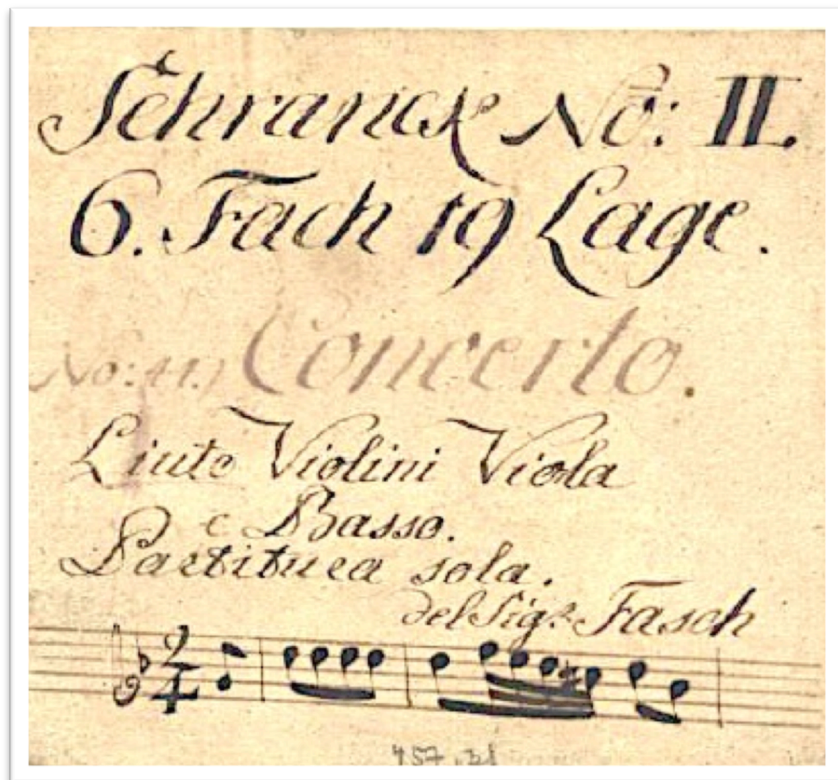 Schranck No: II.
6. Fach 19 Lage.
No: 11.) Concerto.
Liuto Violini Viola
e Basso.
Partitura sola.
del Sigr. Fasch
2/4